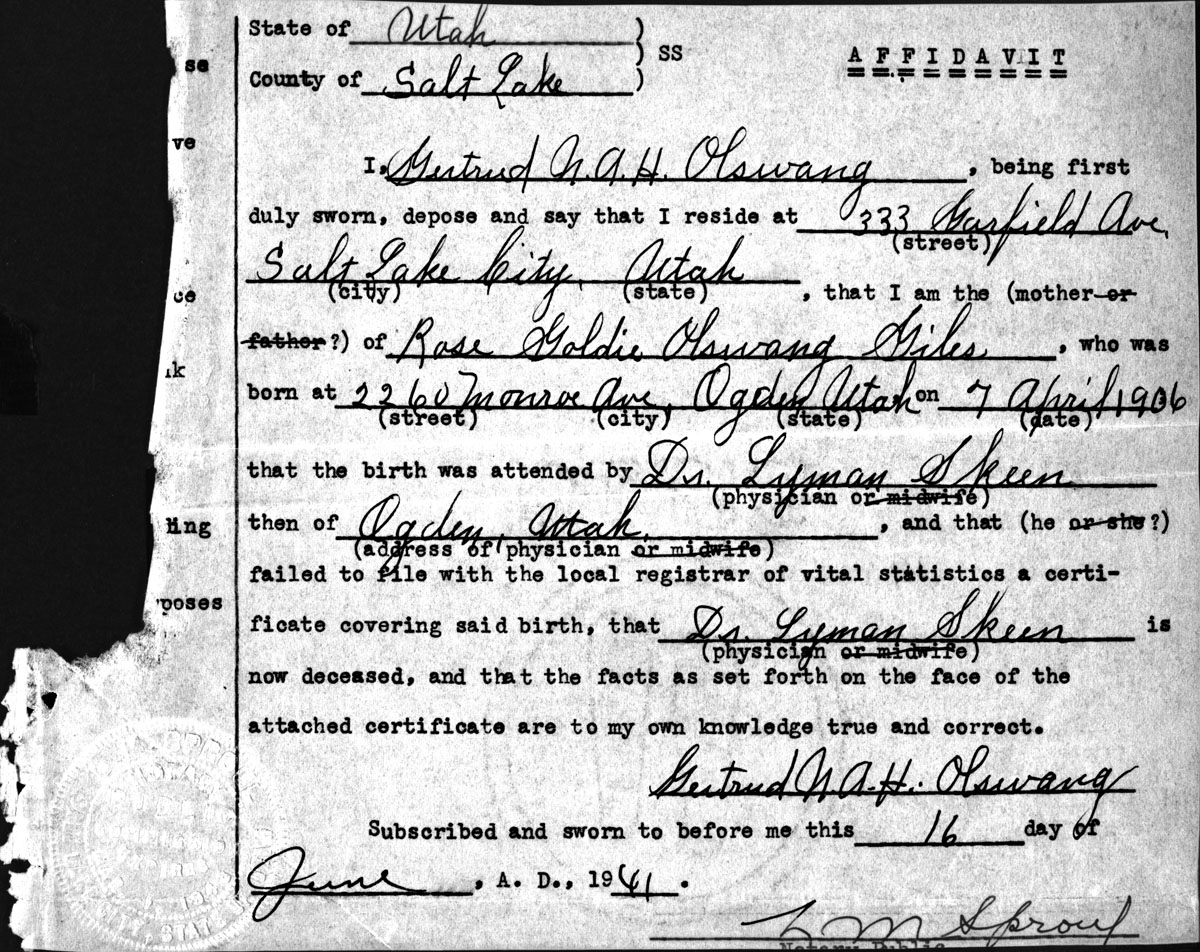 State of Utah )
) SS
County of Salt Lake )
AFFIDAVIT
se
ve
ce
k
ling
poses
I, Gertrud N.A.H. Olswang, being first
duly sworn, depose and say that I reside at 333 Garfield Ave,
(street)
Salt Lake City, Utah, that I am the (mother or
(city) (state)
father?) of Rose Goldie Olswang Giles, who was
born at 2260 Monroe Ave, Ogden Utah on 7 April 1906
(street) (city) (state) (date)
that the birth was attended by Dr. Lyman Skeen
(physician or midwife)
then of Ogden, Utah, and that (he or she?)
(address of physician or midwife)
failed to file with the local registrar of vital statistics a certi-
ficate covering said birth, that Dr. Lyman Skeen is
(physician or midwife)
now deceased, and that the facts as set forth on the face of the
attached certificate are to my own knowledge true and correct.
Gertrud N.A.H. Olswang
Subscribed and sworn to before me this 16 day of
June, A. D., 1941.
L M Sproul
Notary Public